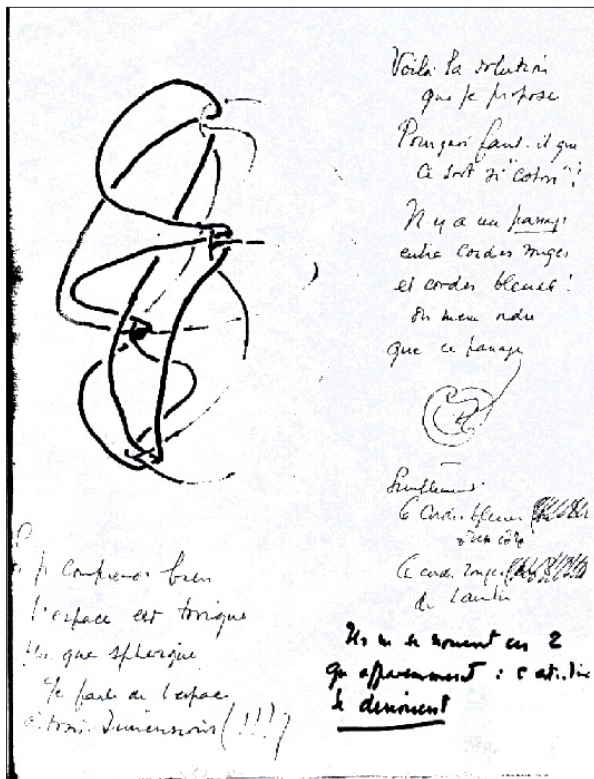 Voilà la solution
que je propose
Pourquoi faut-il que
ce soit si "coton"?
Il y a un passage
entre cordes rouges
et cordes bleues!
du même ordre
que ce passage
Simplement
6 cordes bleues
d'un côté
6 cordes rouges
de l'autre
Ils ne se nouent en 2
qu'apparemment : c'est-à-dire
se dénouent
Si je comprends bien
l'espace est torique
que sphérique
Je parle de l'espace
à trois dimensions (!!!)